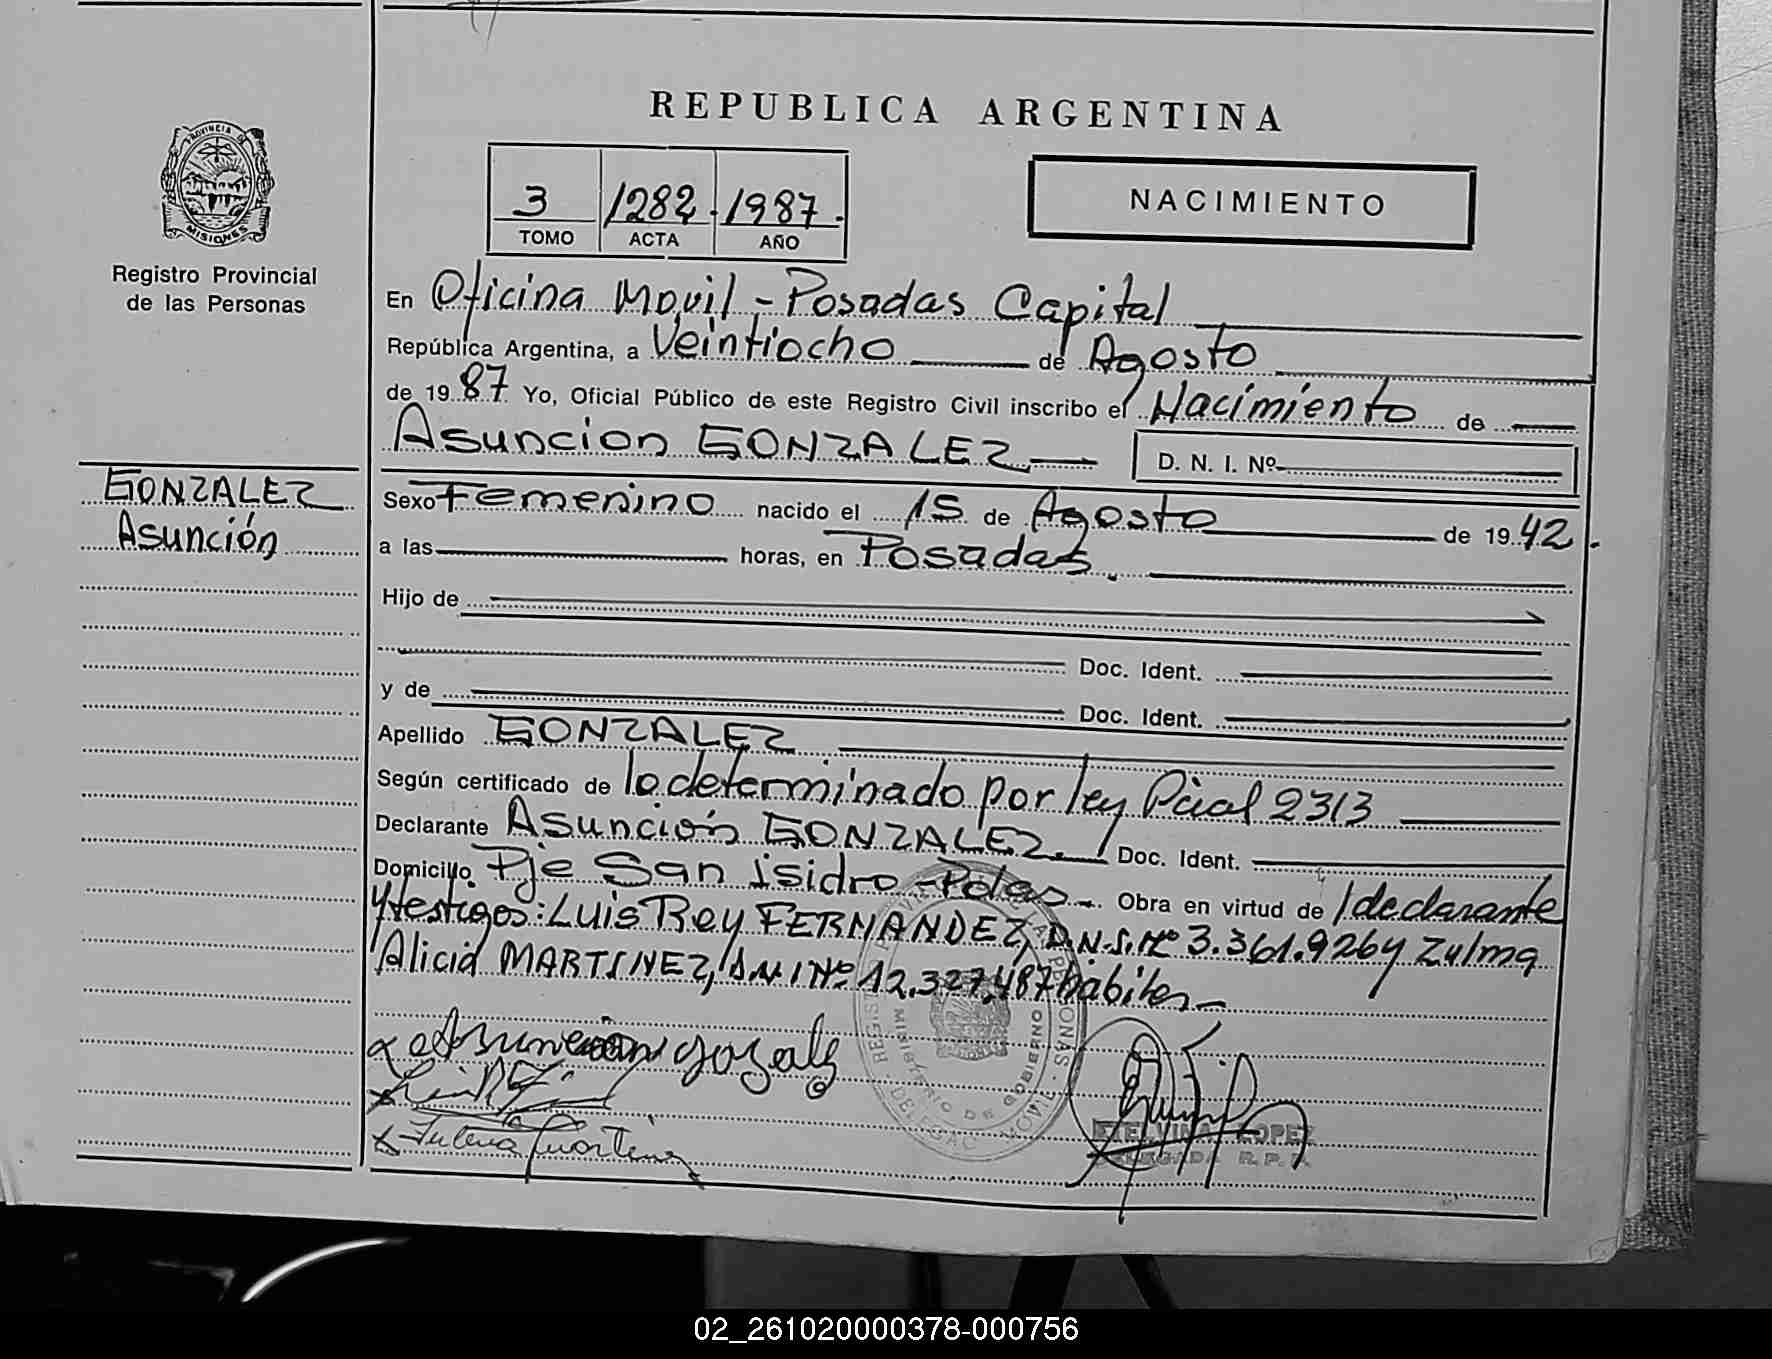 REPUBLICA ARGENTINA
PROVINCIA DE
MISIONES
Registro Provincial
de las Personas
3 1282 1987
TOMO ACTA AÑO
NACIMIENTO
En Oficina Movil - Posadas Capital
República Argentina, a Veintiocho de Agosto
de 1987 Yo, Oficial Público de este Registro Civil inscribo el Nacimiento de
Asuncion GONZALEZ D. N. I. Nº
GONZALEZ
Asunción
Sexo Femenino nacido el 15 de Agosto de 1942.
a las horas, en Posadas
Hijo de
Doc. Ident.
y de Doc. Ident.
Apellido GONZALEZ
Según certificado de lo determinado por ley Pcial 2313
Declarante Asunción GONZALEZ. Doc. Ident.
Domicilio Pje San isidro - Pdas. Obra en virtud de / declarante
y testigos: Luis Rey FERNANDEZ, D.N.I. Nº 3.361.926 y Zulma
Alicia MARTINEZ, D.N.I Nº 12.327.487 hábiles
Asuncion gozalz
ETELVINA LOPEZ
DELEGADA R.P.P.
MINISTERIO DE GOBIERNO
02_261020000378-000756